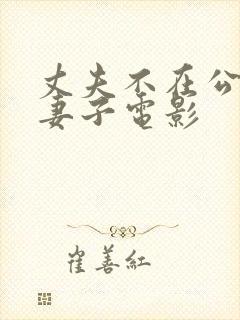 丈夫不在公
妻子电影
崔善红